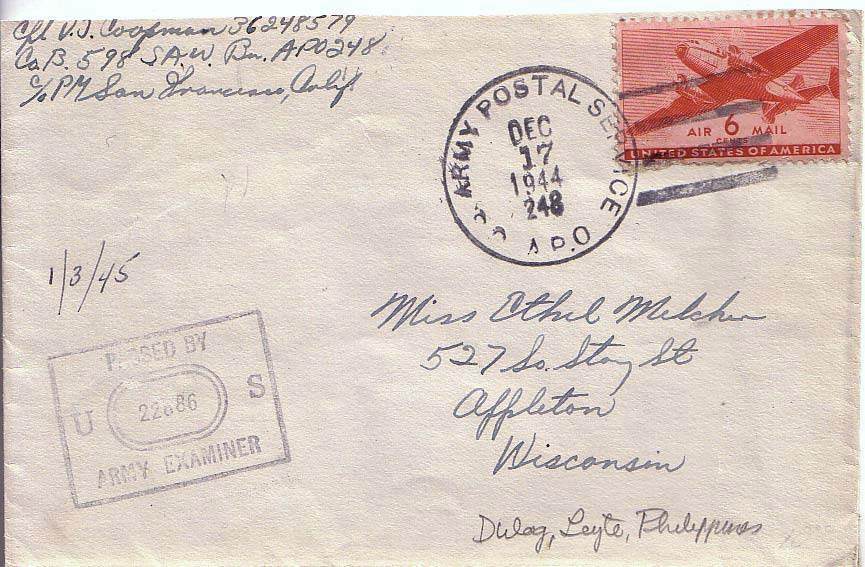 Cpl V.J. Coopman 36248579
Co. B. 598 S.A.W. Bn. APO 248
c/o PM San Francisco, Calif
ARMY POSTAL SERVICE
DEC
17
1944
248
A.P.O
AIR 6 MAIL
CENTS
UNITED STATES OF AMERICA
1/3/45
Miss Ethel Melcher
527 So. Story St
Appleton
Wisconsin
PASSED BY
U S
ARMY EXAMINER
Dulag, Leyte, Philippines